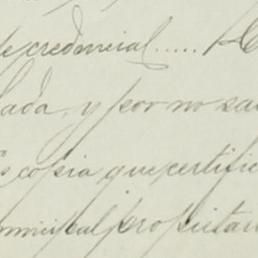 de credencial.....
lada, y por no sa
Es copia que certific
municipal propietar